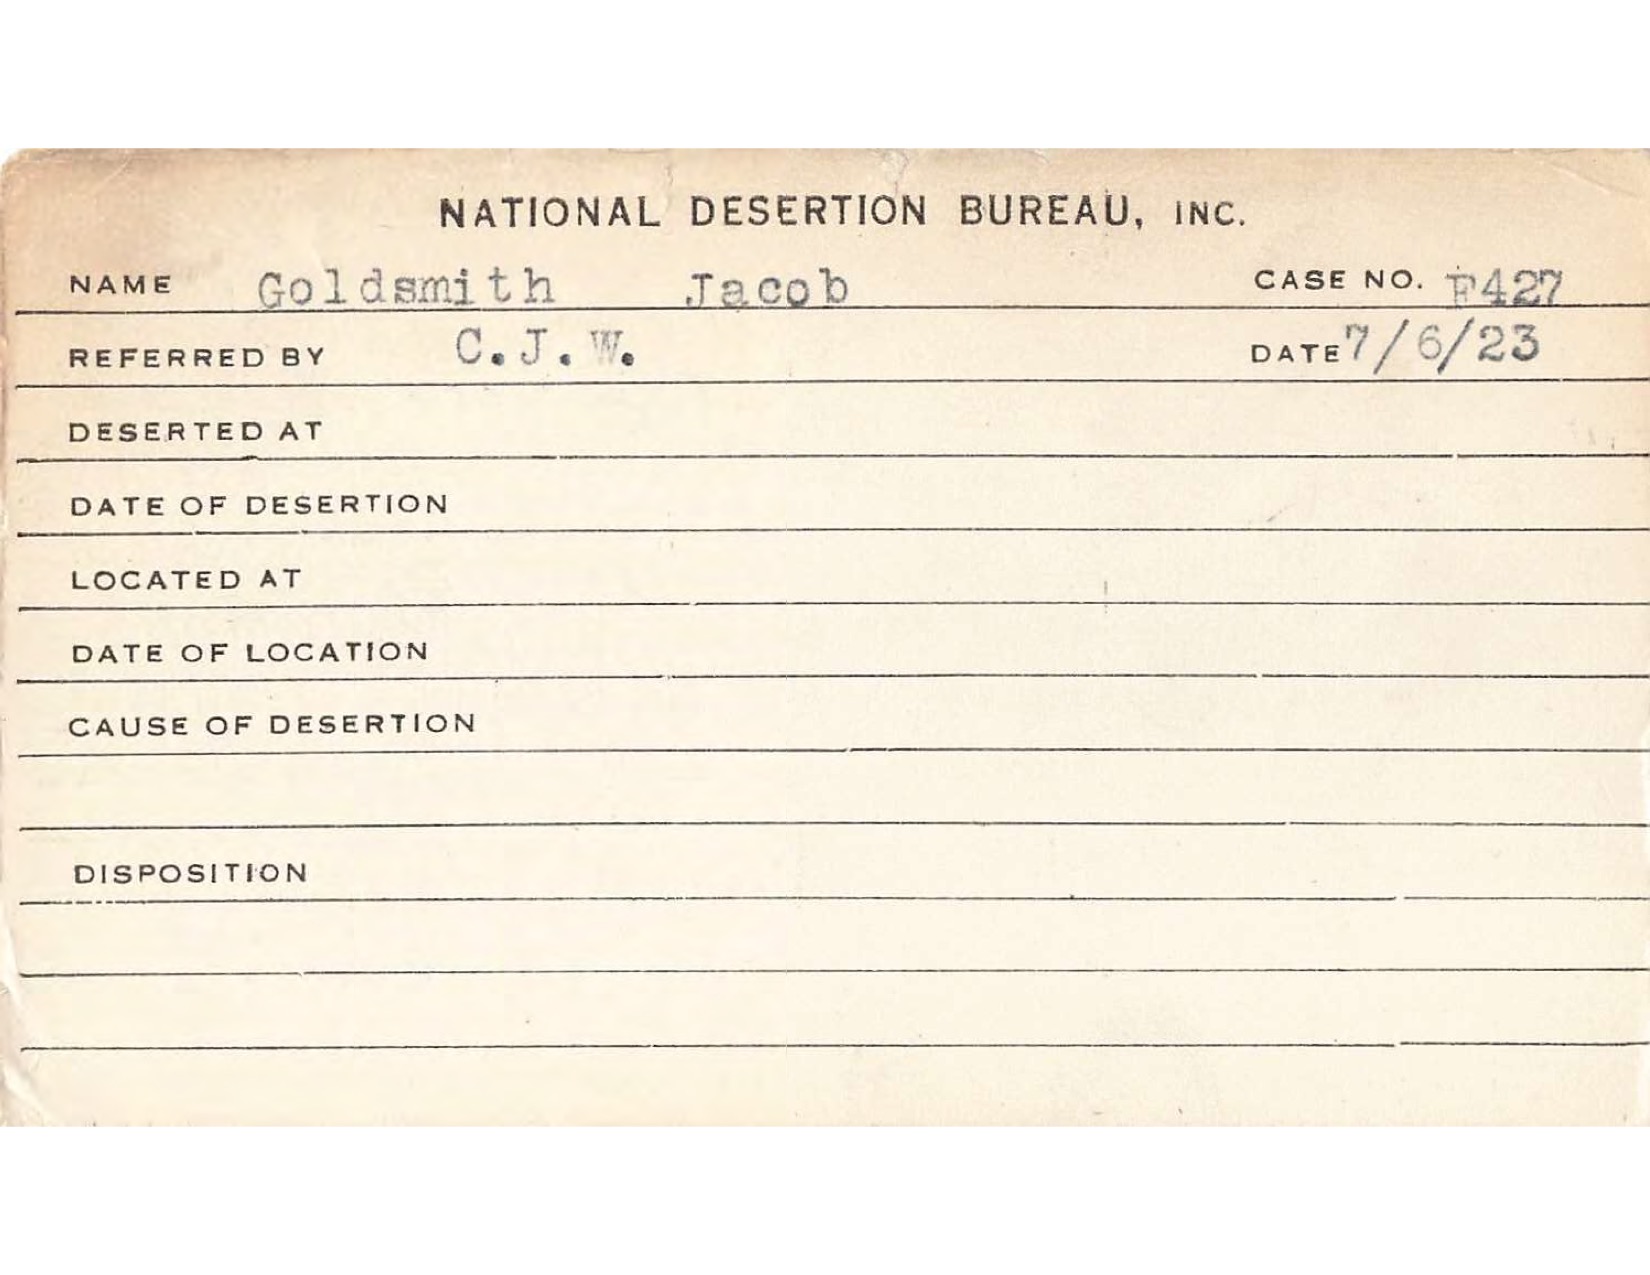 NATIONAL DESERTION BUREAU, INC.
NAME Goldsmith Jacob CASE NO. F427
REFERRED BY C.J.W. DATE 7/6/23
DESERTED AT
DATE OF DESERTION
LOCATED AT
DATE OF LOCATION
CAUSE OF DESERTION
DISPOSITION